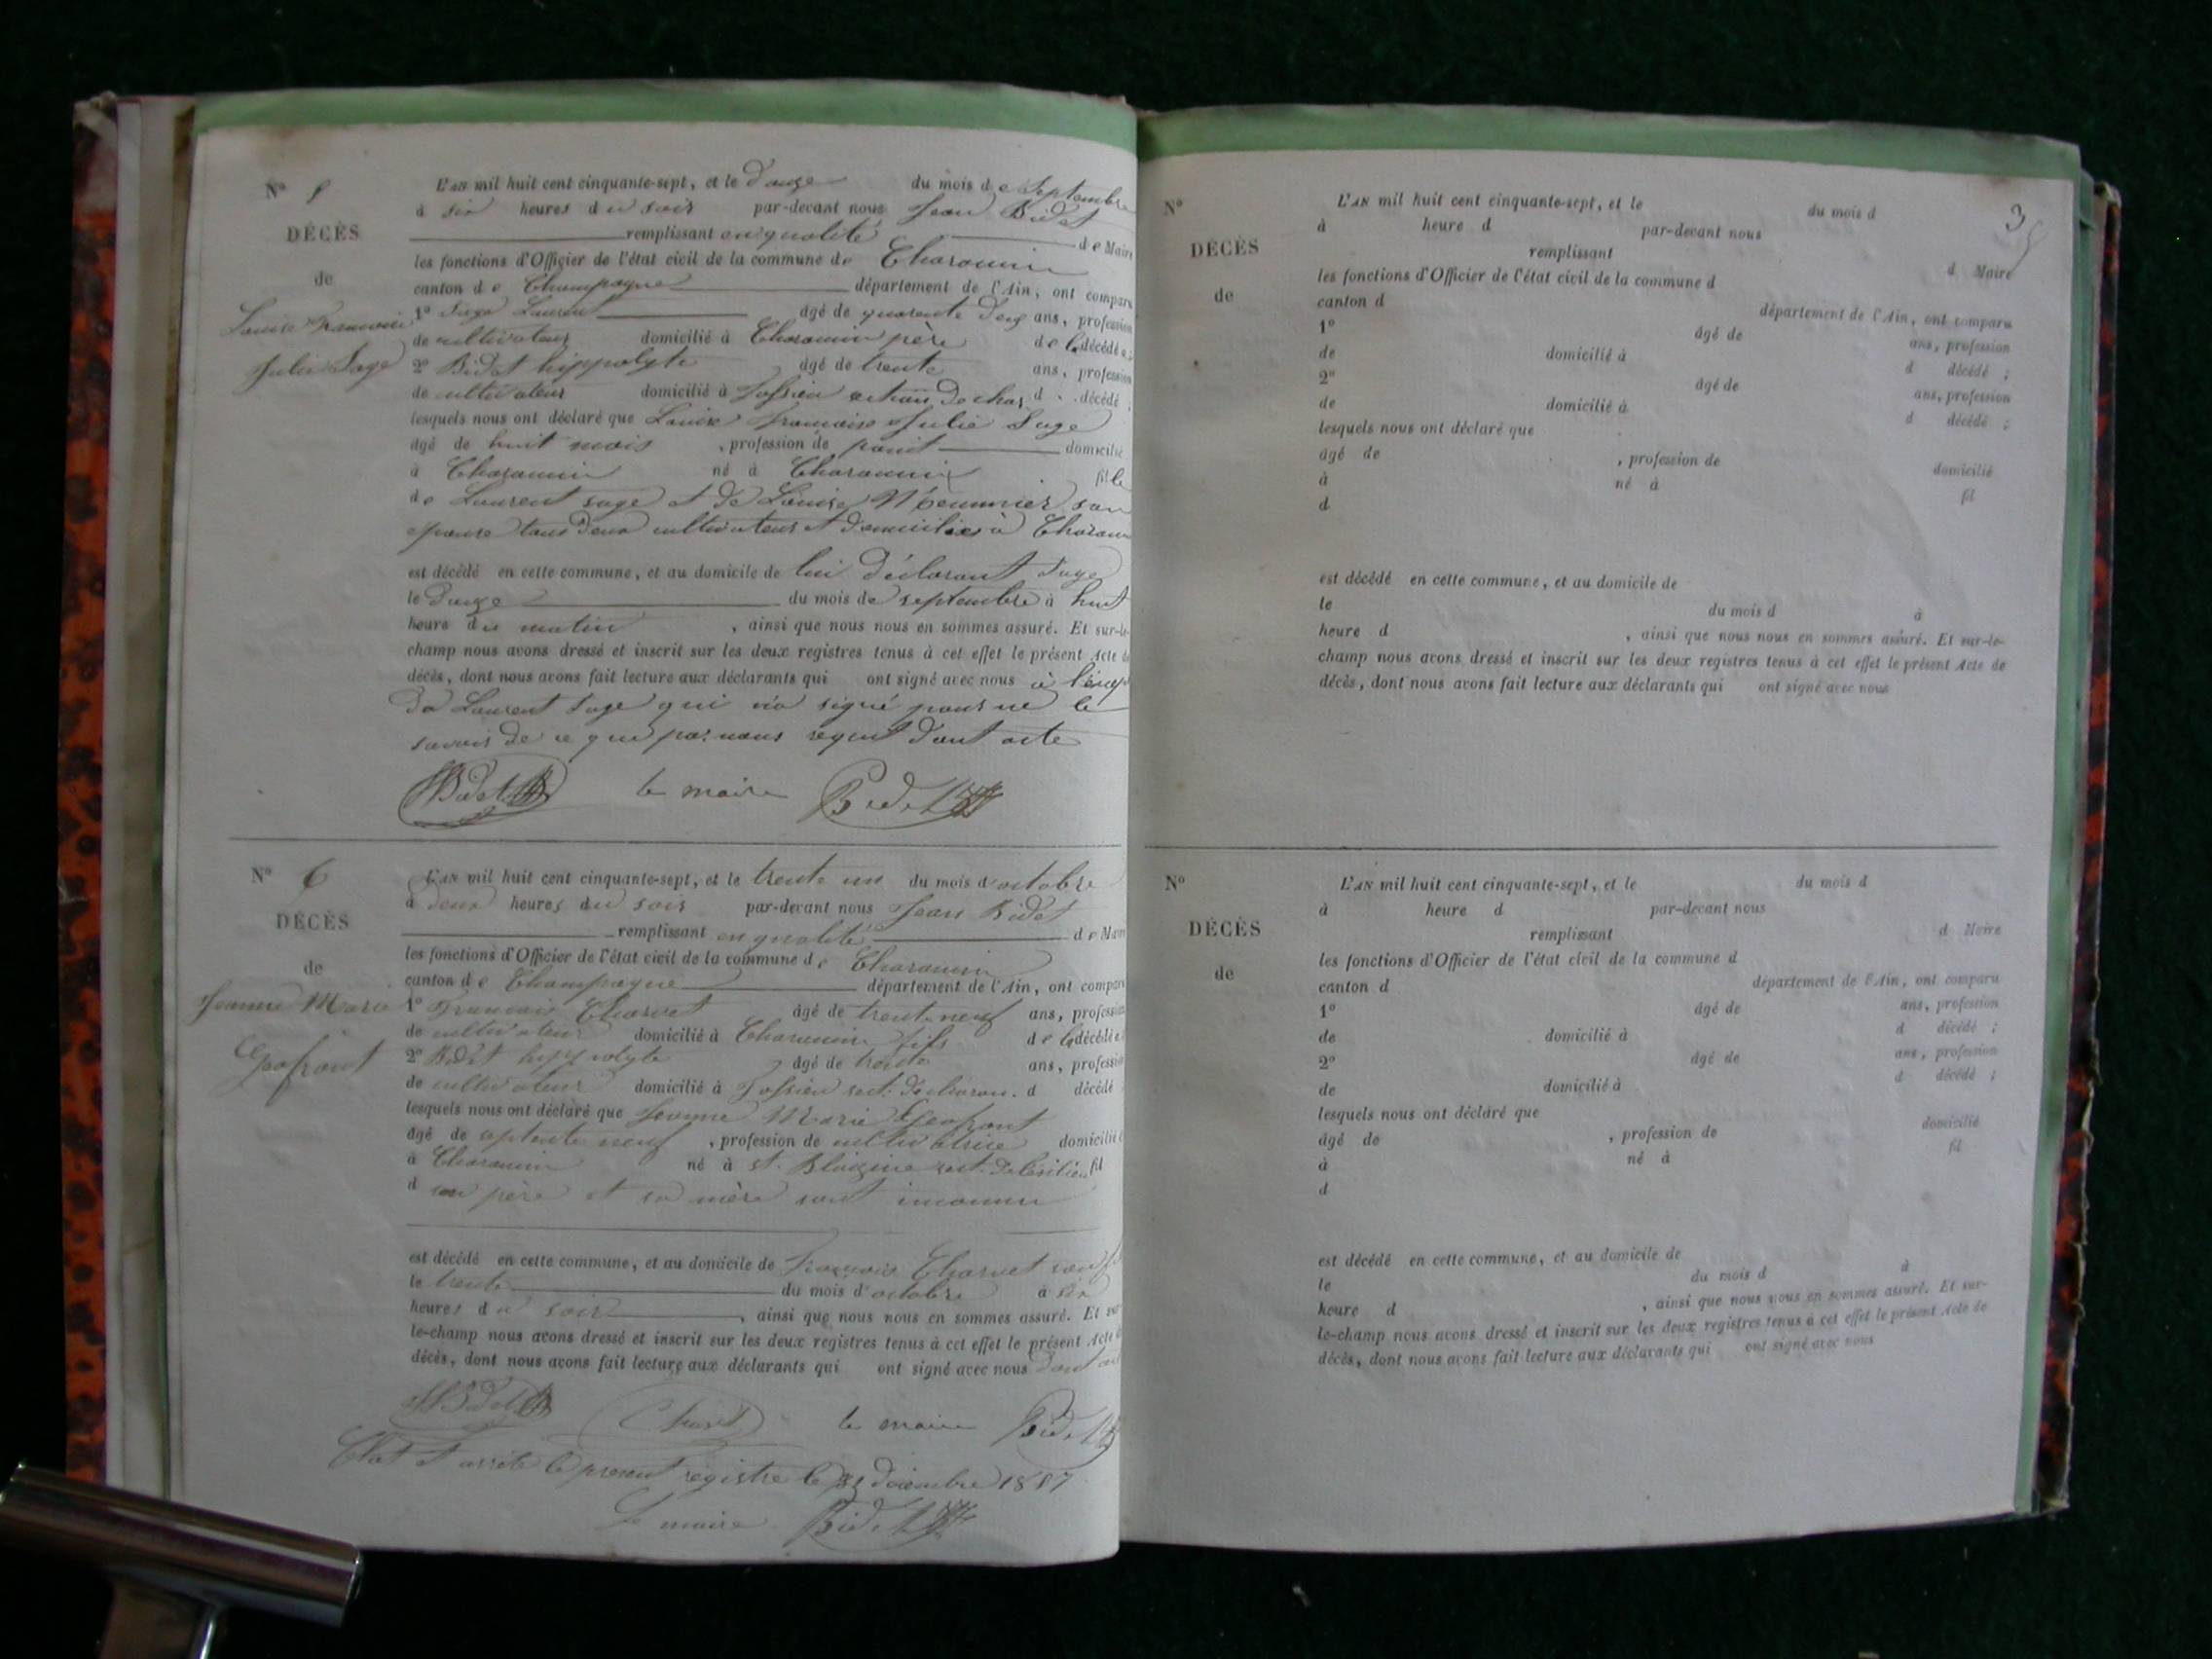 N° 5
DÉCÈS
de
Louise Francoise
Julie Sage
L'AN mil huit cent cinquante-sept, et le douze du mois de Septembre
à six heures du soir par-devant nous Jean Bidet
remplissant en qualité de Maire
les fonctions d'Officier de l'état civil de la commune de Charancin
canton de Champagne département de l'Ain, ont comparu
1° Sage Laurent âgé de quarente deux ans, profession
de cultivateur domicilié à Charancin père de la décédée;
2° Bidet hippolyte âgé de trente ans, profession
de cultivateur domicilié à section de char d décédé;
lesquels nous ont déclaré que Louise francoise Julie Sage
âgé de huit mois, profession de point domicilié
à Charancin né à Charancin fille
de Laurent sage et de Louise son
epouse tous deux cultivateurs et domiciliés à Charan
est décédé en cette commune, et au domicile de lui déclarant Sage
le douze du mois de septembre à huit
heure du matin, ainsi que nous nous en sommes assuré. Et sur-le-
champ nous avons dressé et inscrit sur les deux registres tenus à cet effet le présent Acte de
décès, dont nous avons fait lecture aux déclarants qui ont signé avec nous à l'excep
de Laurent Sage qui n'a signé pour ne le
savoir de ce que par nous requit dont acte
HBidet le maire Bidet
N° 6
DÉCÈS
de
Jeanne Marie
Geofront
L'AN mil huit cent cinquante-sept, et le trente un du mois d'octobre
à deux heures du soir par-devant nous Jean Bidet
remplissant en qualité de Maire
les fonctions d'Officier de l'état civil de la commune de Charancin
canton de Champagne département de l'Ain, ont comparu
1° Francois Charvet âgé de trente neuf ans, profession
de cultivateur domicilié à Charancin fils de la décédée
2° Bidet hippolyte âgé de trente ans, profession
de cultivateur domicilié à sect. de charan. d décédé
lesquels nous ont déclaré que Jeanne Marie Geofront
âgé de septente neuf, profession de cultivatrice domicilié
à Charancin né à st. Blaizine sect. de fil
d son père et sa mère sont inconnu
est décédé en cette commune, et au domicile de François Charvet son
le trente du mois d'octobre à six
heures du soir, ainsi que nous nous en sommes assuré. Et sur-
le-champ nous avons dressé et inscrit sur les deux registres tenus à cet effet le présent Acte de
décès, dont nous avons fait lecture aux déclarants qui ont signé avec nous dont
HBidet Charvet le maire Bidet
Clot et arrêté le présent registre le 31 décembre 1857
Le maire Bidet
3
N°
DÉCÈS
de
L'AN mil huit cent cinquante-sept, et le du mois d
à heure d par-devant nous
remplissant d Maire
les fonctions d'Officier de l'état civil de la commune d
canton d département de l'Ain, ont comparu
1° âgé de ans, profession
de domicilié à d décédé ;
2° âgé de ans, profession
de domicilié à d décédé ;
lesquels nous ont déclaré que
âgé de , profession de domicilié
à né à fil
d
est décédé en cette commune, et au domicile de
le du mois d à
heure d , ainsi que nous nous en sommes assuré. Et sur-le-
champ nous avons dressé et inscrit sur les deux registres tenus à cet effet le présent Acte de
décès, dont nous avons fait lecture aux déclarants qui ont signé avec nous
N°
DÉCÈS
de
L'AN mil huit cent cinquante-sept, et le du mois d
à heure d par-devant nous
remplissant d Maire
les fonctions d'Officier de l'état civil de la commune d
canton d département de l'Ain, ont comparu
1° âgé de ans, profession
de domicilié à d décédé ;
2° âgé de ans, profession
de domicilié à d décédé ;
lesquels nous ont déclaré que
âgé de , profession de domicilié
à né à fil
d
est décédé en cette commune, et au domicile de
le du mois d à
heure d , ainsi que nous nous en sommes assuré. Et sur-
le-champ nous avons dressé et inscrit sur les deux registres tenus à cet effet le présent Acte de
décès, dont nous avons fait lecture aux déclarants qui ont signé avec nous